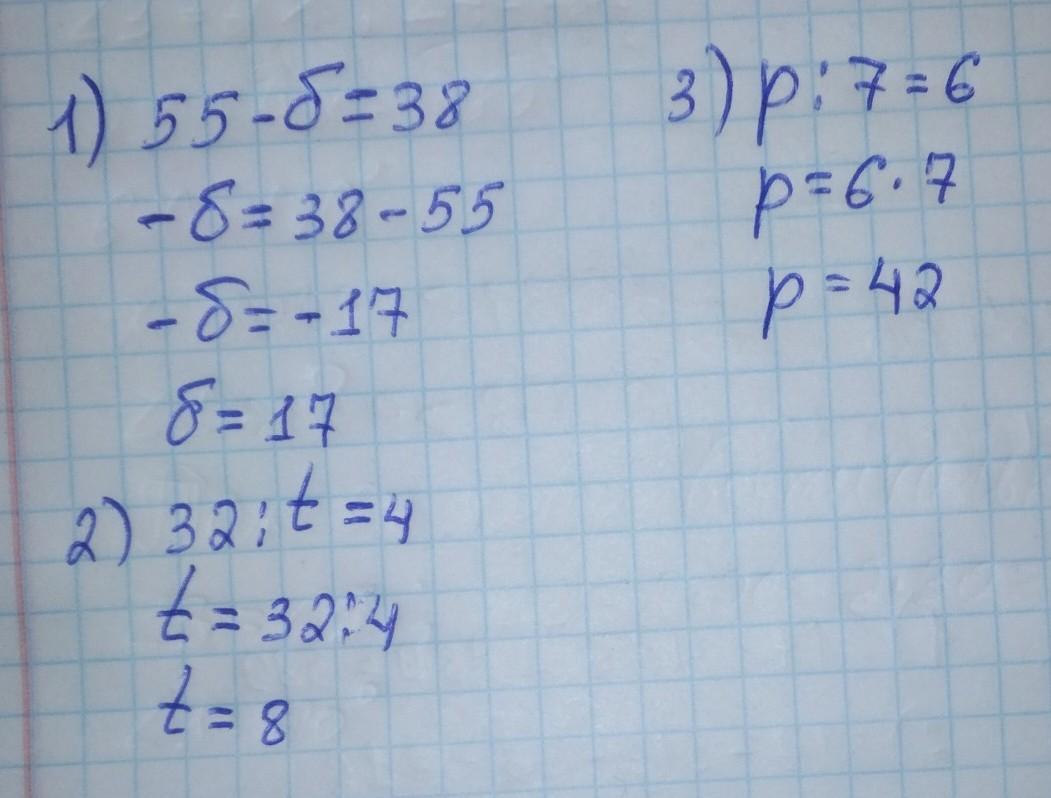 1) 55-б=38
-б=38-55
-б=-17
б=17
2) 32:t=4
t=32:4
t=8
3) p:7=6
p=6·7
p=42